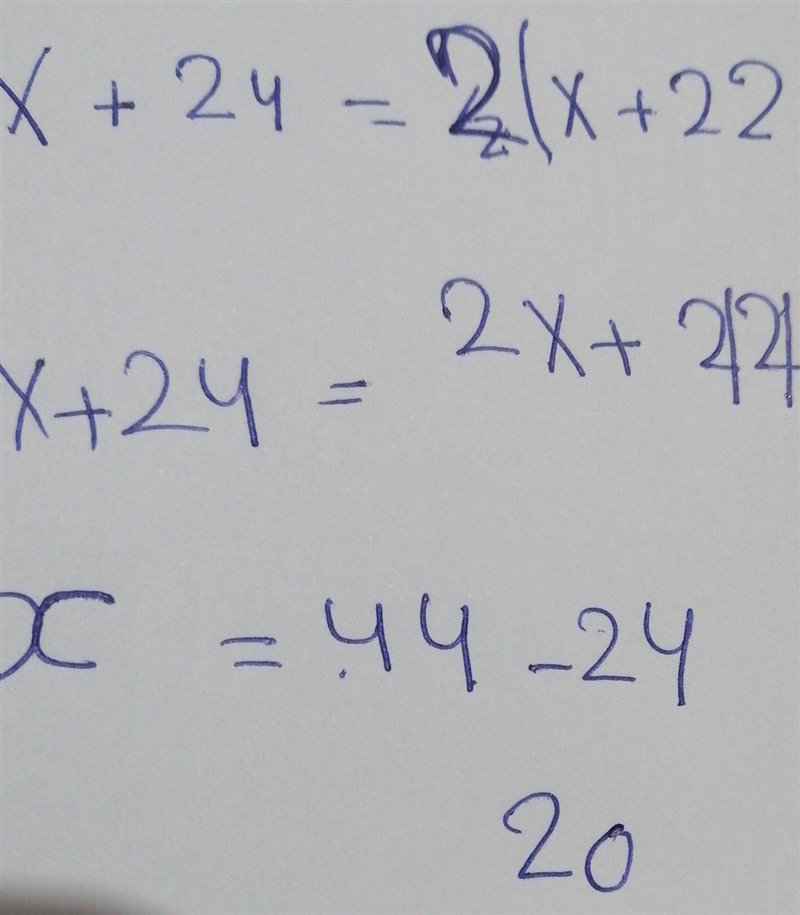 x + 24 = 2(x + 22
x + 24 = 2x + 44
x = 44 - 24
20